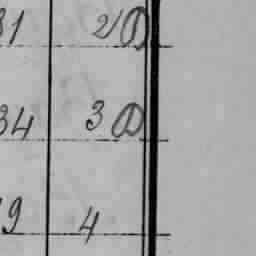 31 2/D
34 3 D
9 4